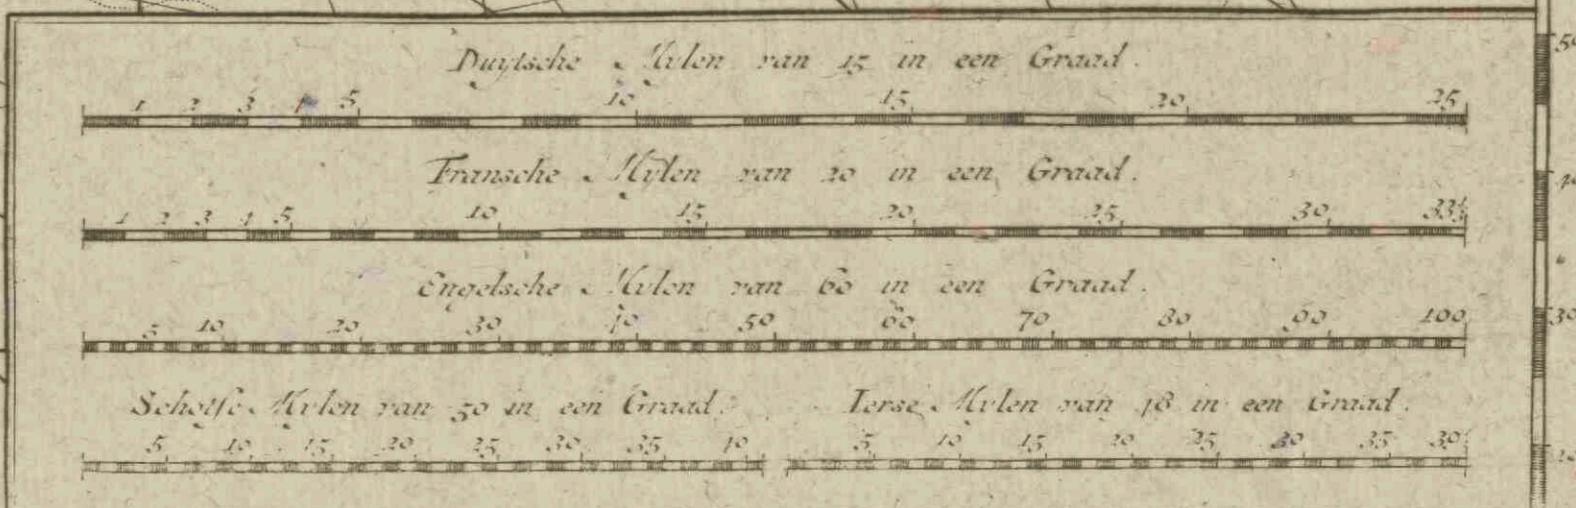 Duytsche Mylen van 15 in een Graad.
1 2 3 4 5 10 15 20 25
Fransche Mylen van 20 in een Graad.
1 2 3 4 5 10 15 20 25 30 33⅓
Engelsche Mylen van 60 in een Graad.
5 10 20 30 40 50 60 70 80 90 100
Schotse Mylen van 50 in een Graad. Ierse Mylen van 48 in een Graad.
5 10 15 20 25 30 35 40 5 10 15 20 25 30 35
50
40
30